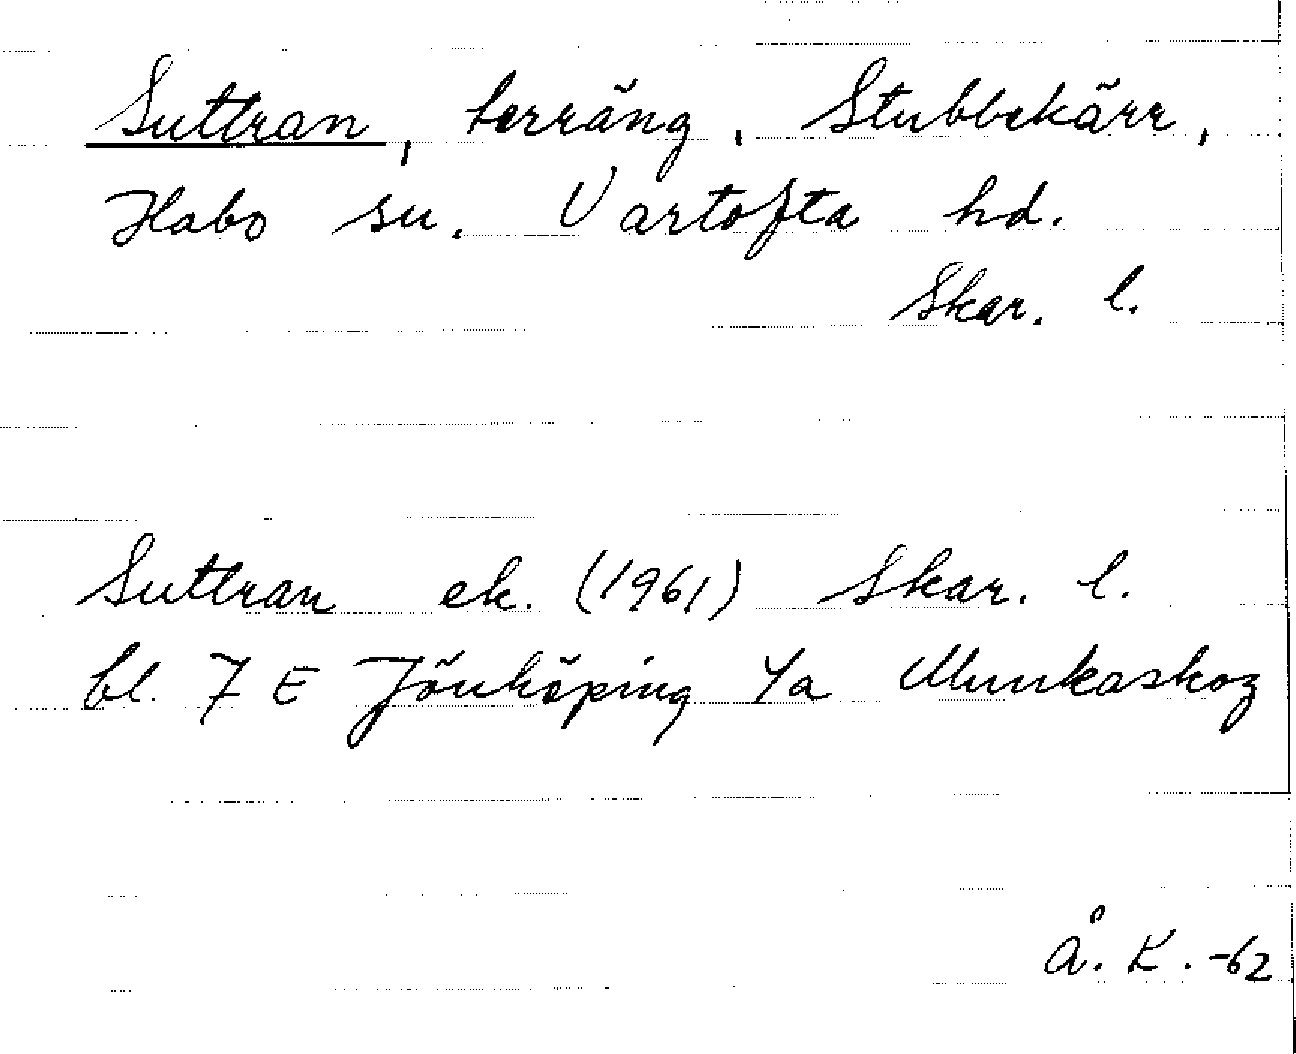 Suttran, terräng, Stubbekärr,
Habo sn. Vartofta hd.
Skar. l.
Suttran ek. (1961) Skar. l.
bl. 7 E Jönköping 4a Munkaskog
Å. K. -62